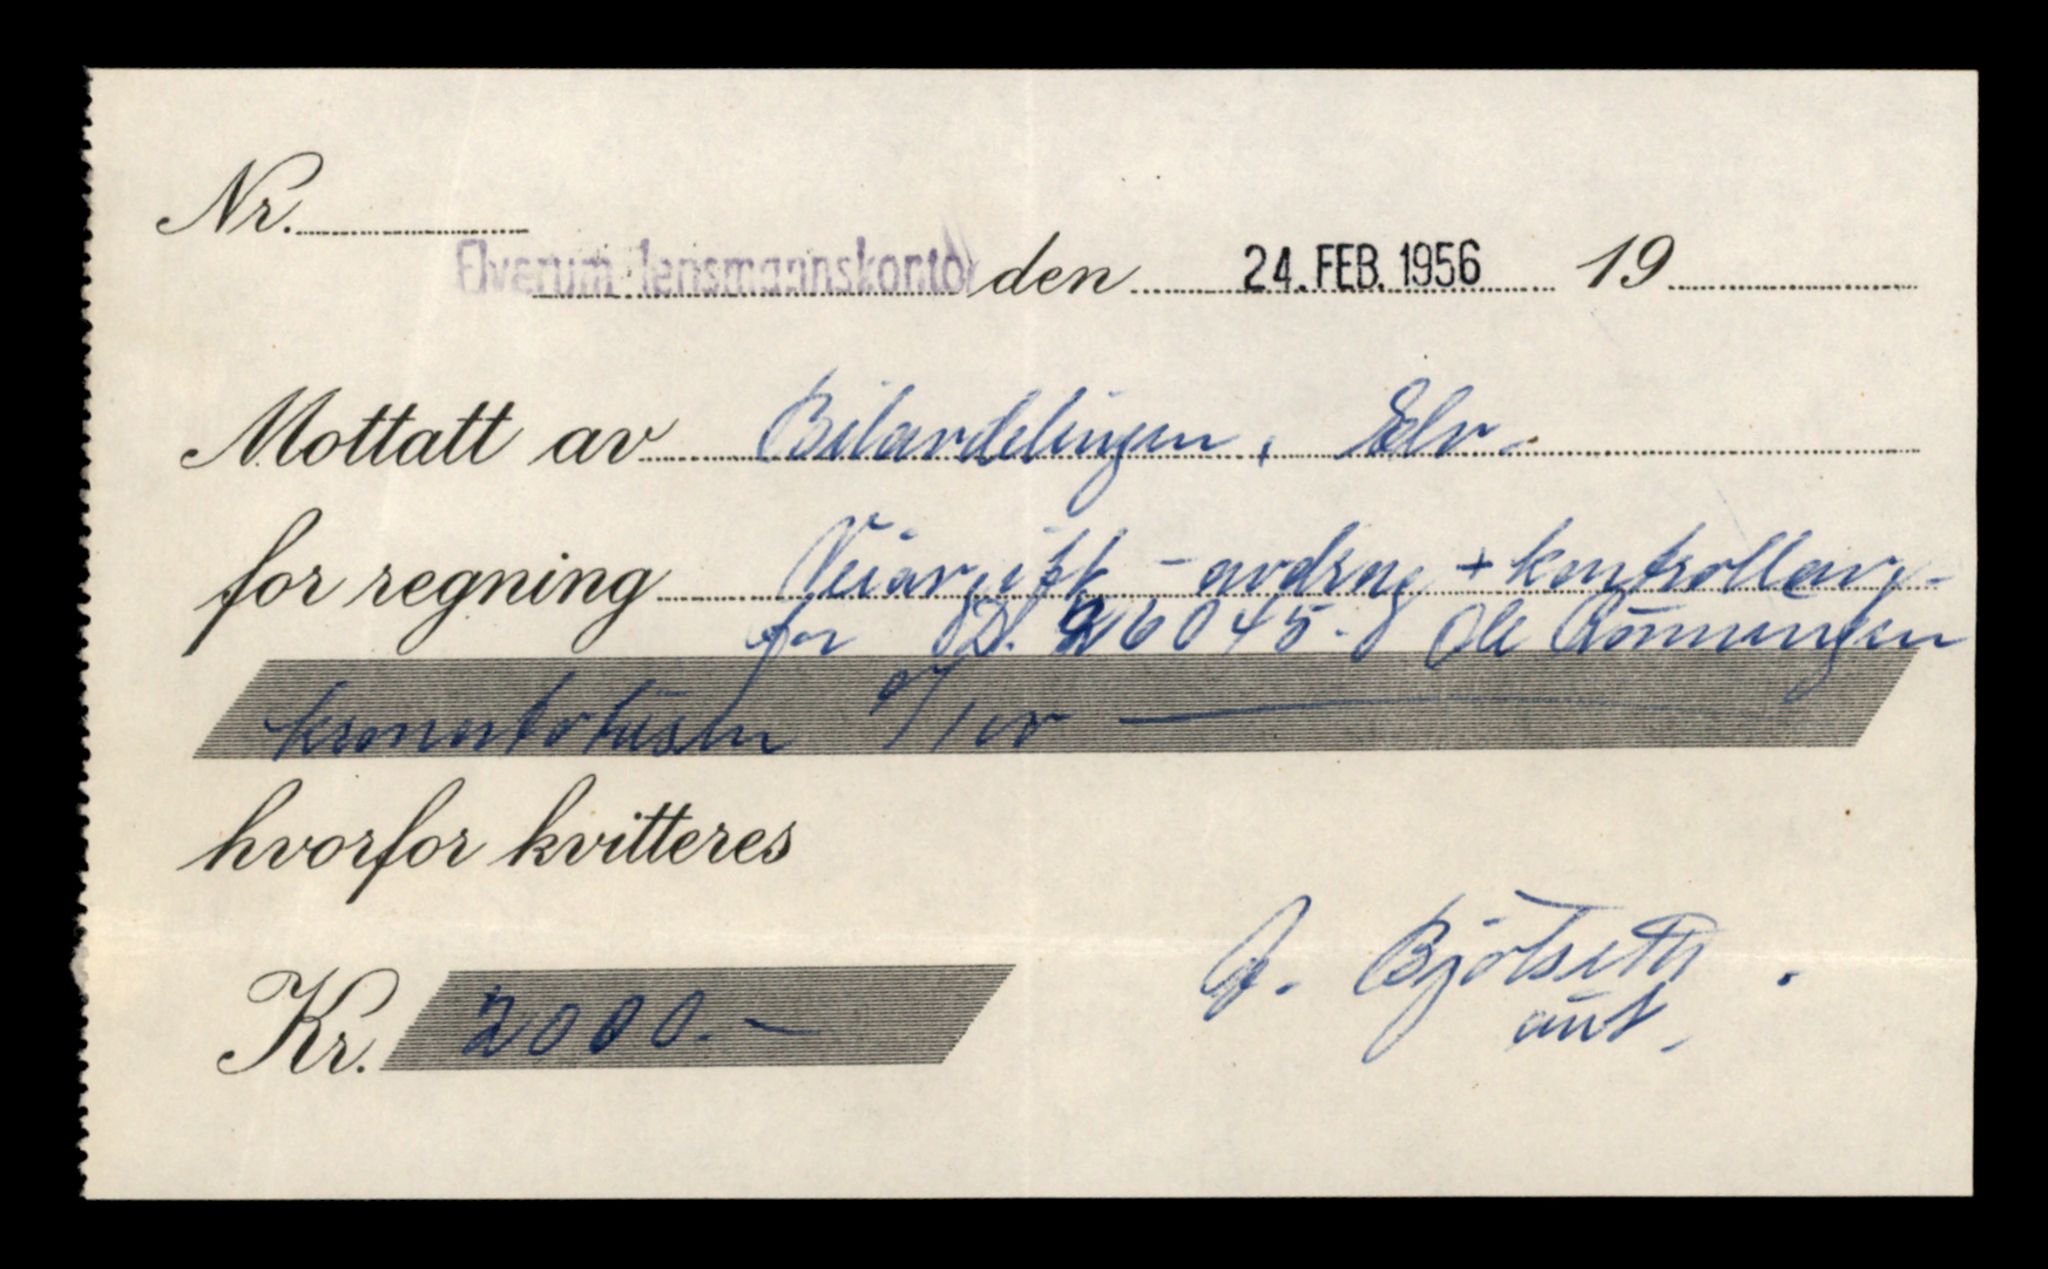 Nr.
Elverum lensmannskontor den 24. FEB. 1956 19
Mottatt av Bilavdelingen, Elv.
for regning Veiavgift - avdrag + kontrollavg.
for D. 26045. Ole Rönningen
kronertotusen 0/100
hvorfor kvitteres
Kr. 2000.-
Bjölseth
ass.